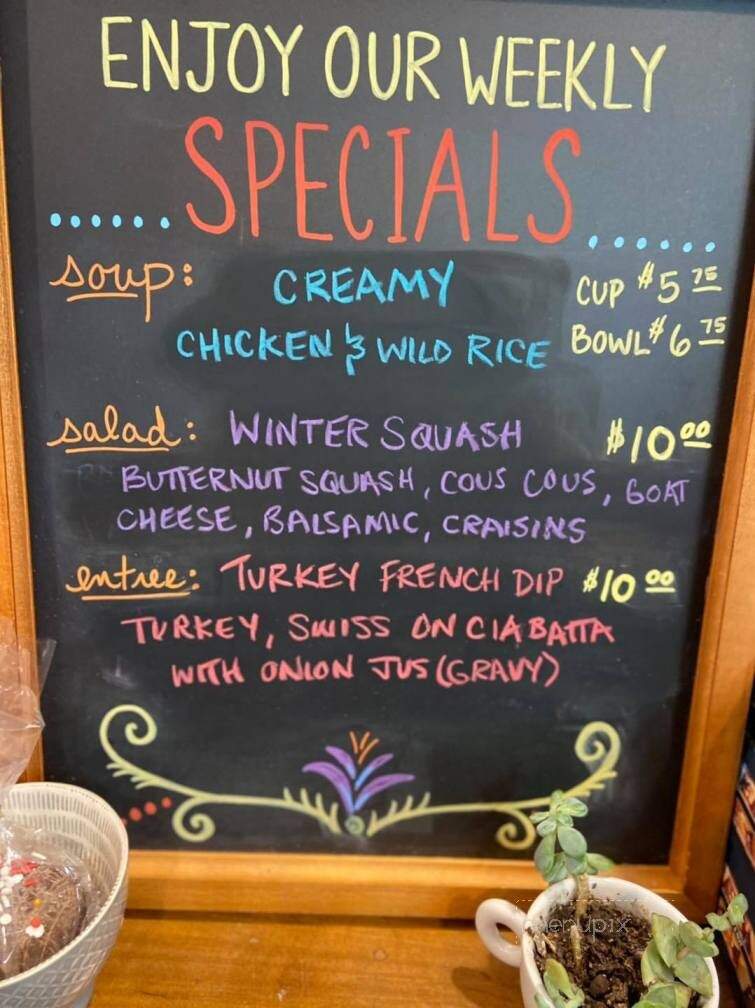 ENJOY OUR WEEKLY
SPECIALS
soup: CREAMY CUP $5 75
CHICKEN & WILD RICE BOWL $6 75
salad: WINTER SQUASH $10 00
BUTTERNUT SQUASH, COUS COUS, GOAT
CHEESE, BALSAMIC, CRAISINS
entree: TURKEY FRENCH DIP $10 00
TURKEY, SWISS ON CIABATTA
WITH ONION JUS (GRAVY)
menupix